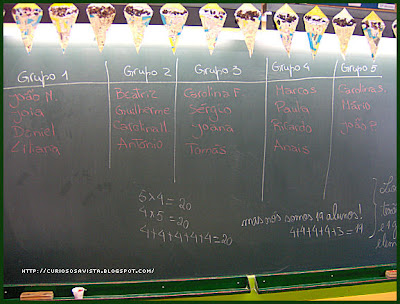 Grupo 1
João N.
Joia
Daniel
Liliana
Grupo 2
Beatriz
Guilherme
Carolina M.
António
Grupo 3
Carolina F.
Sérgio
Yoana
Tomás
Grupo 4
Marcos
Paulo
Ricardo
Anaís
Grupo 5
Carolina S.
Mário
João P.
5 x 4 = 20
4 x 5 = 20
4+4+4+4+4=20
mas nós somos 19 alunos!
4+4+4+4+3=19
HTTP://CURIOSOSAVISTA.BLOGSPOT.COM/